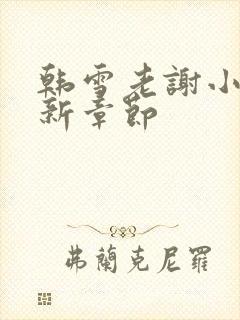 韩雪老謝小
新章節
弗蘭克尼羅